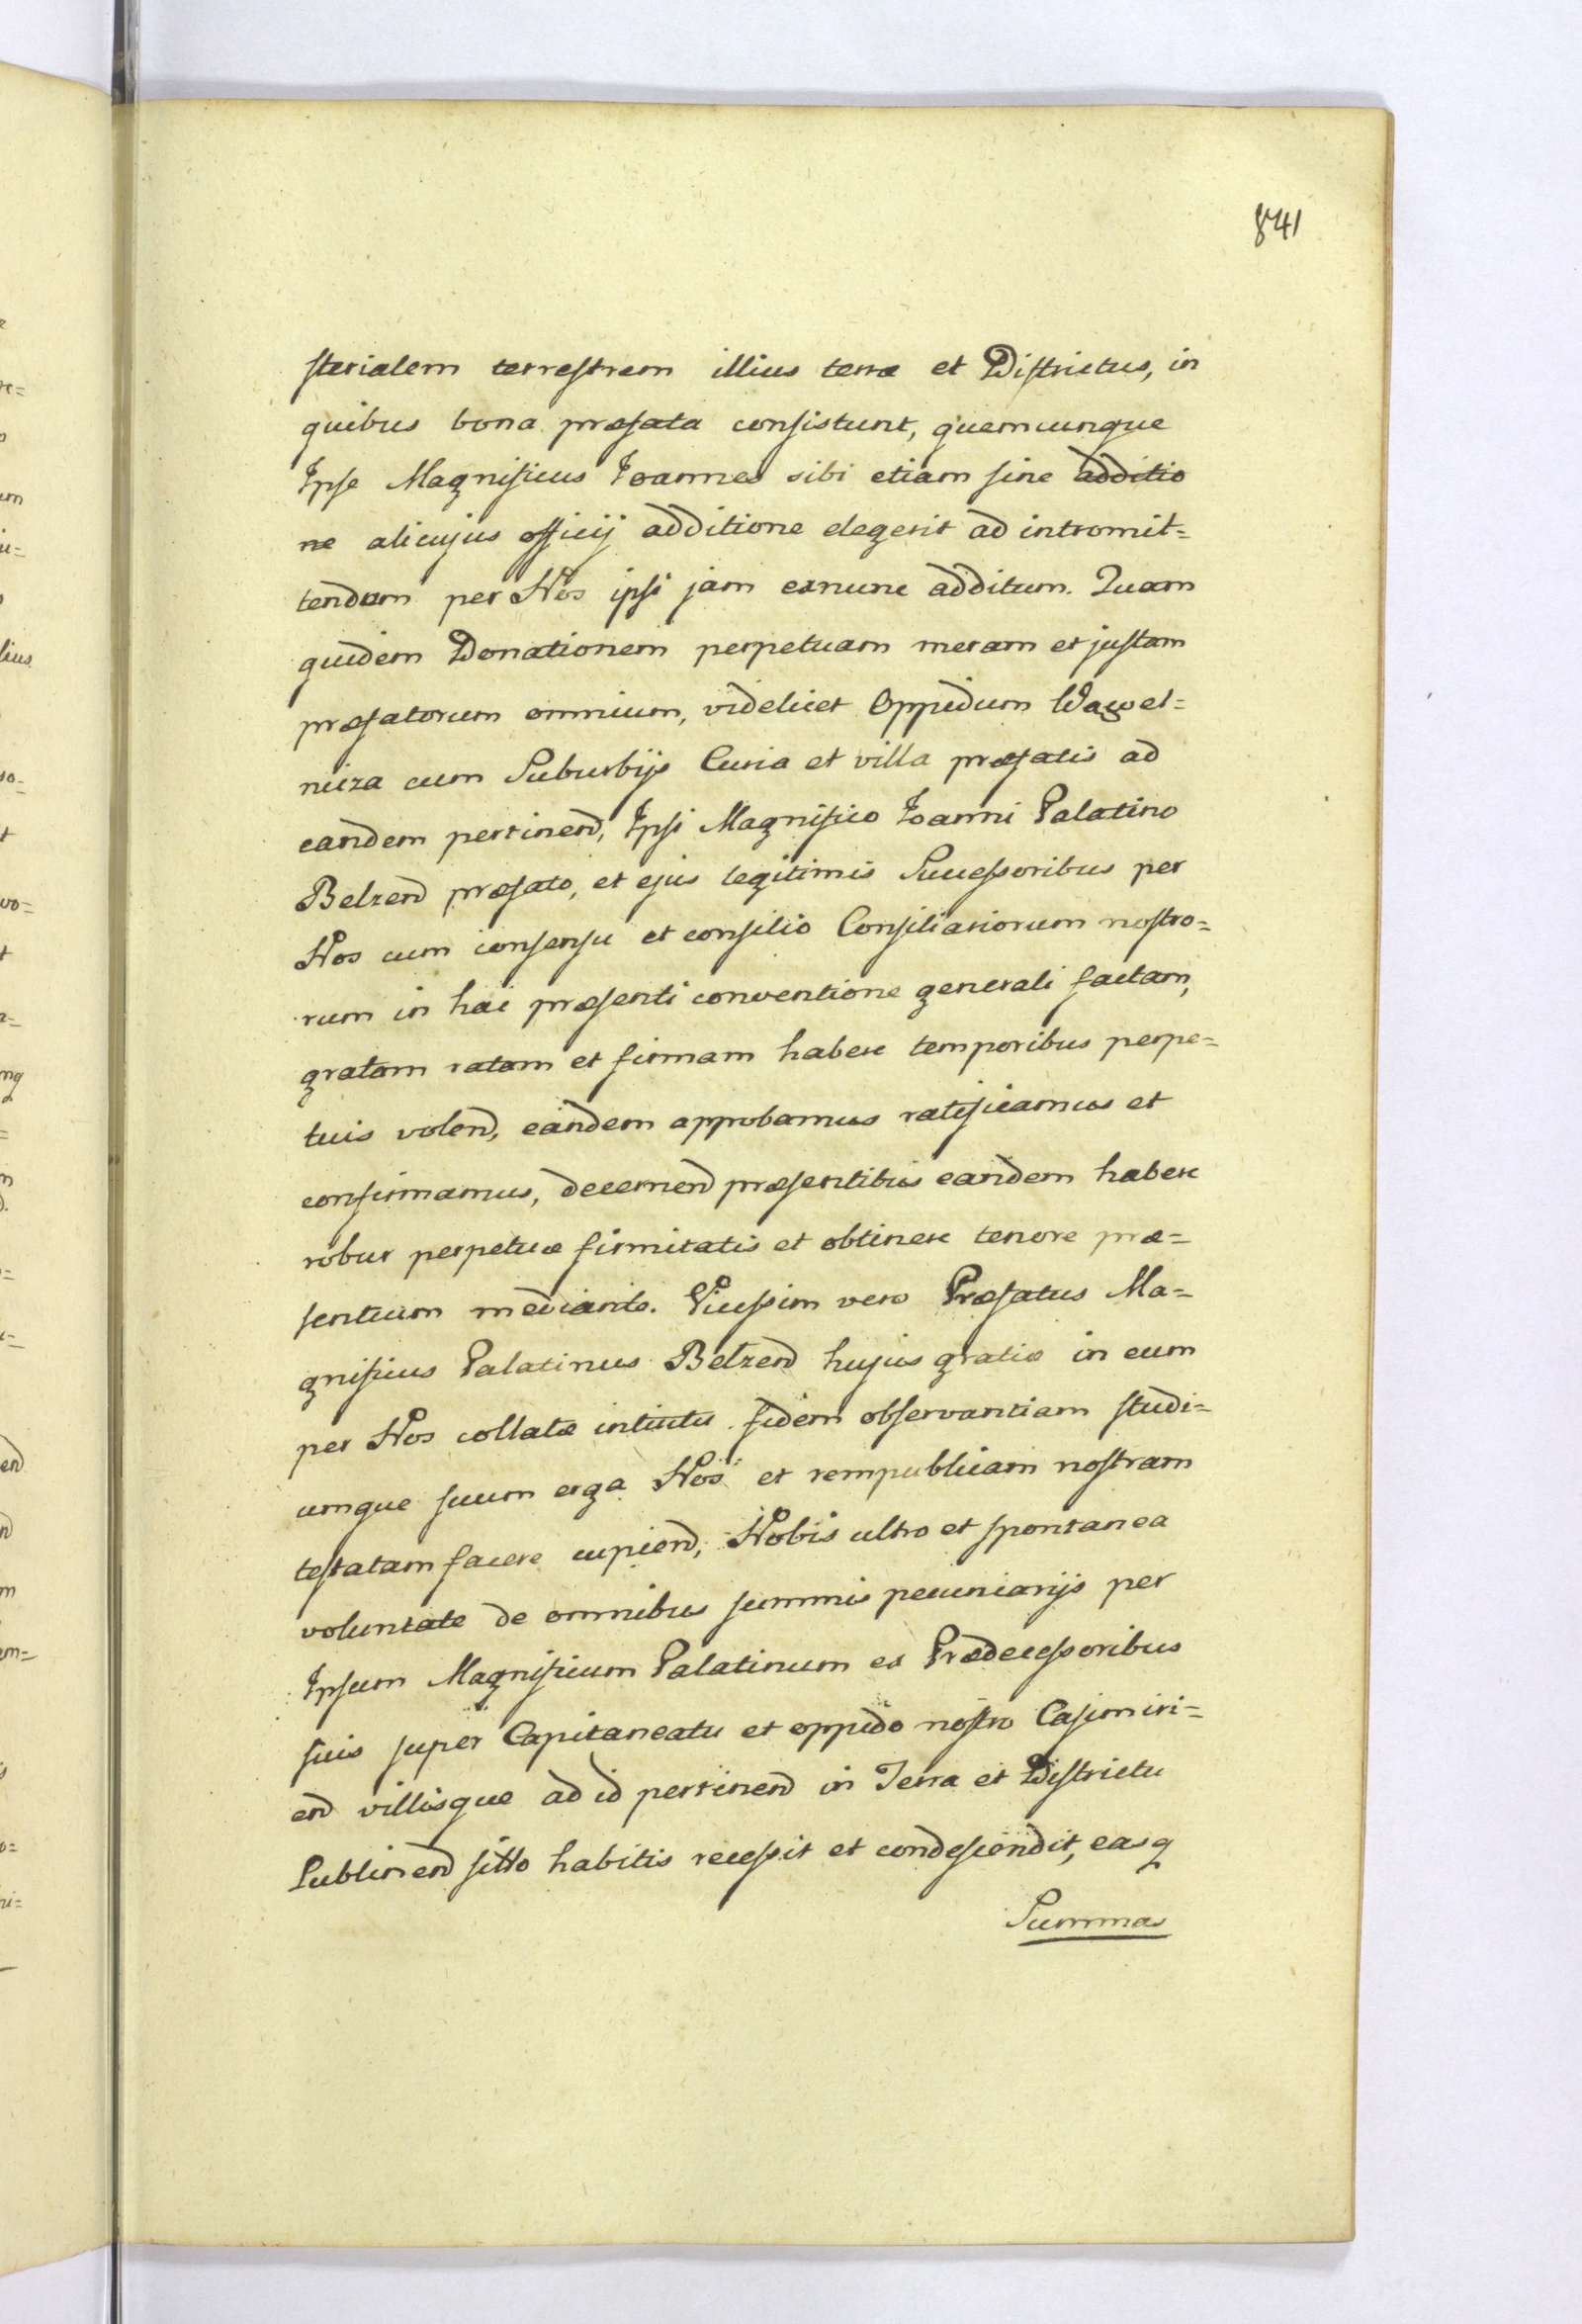 841
sterialem terrestrem illius terræ et Districtus, in
quibus bona præfata consistunt, quemcunque
Ipse Magnificus Joannes sibi etiam sine additio
ne alicujus officij additione elegerit ad intromit=
tendum per Nos ipsi jam exnunc additum. Quam
quidem Donationem perpetuam meram et justam
præfatorum omnium, videlicet Oppidum Wąwel=
nicza cum Suburbijs Curia et villa præfatis ad
eandem pertinend, Ipsi Magnifico Joanni Palatino
Belzend præfato, et ejus legitimis Successoribus per
Nos cum consensu et consilio Consiliariorum nostro=
rum in hac præsenti conventione generali factam,
gratam ratam et firmam habere temporibus perpe=
tuis volend, eandem approbamus ratificamus et
confirmamus, decernend præsentibus eandem habere
robur perpetuæ firmitatis et obtinere tenore præ=
sentium mediante. Vicissim vero Præfatus Ma=
gnificus Palatinus Belzend hujus gratiæ in eum
per Nos collatæ intuitu fidem observantiam studi=
umque suum erga Nos et rempublicam nostram
testatam facere cupiend, Nobis ultro et spontanea
voluntate de omnibus summis pecuniarijs per
Ipsum Magnificum Palatinum ex Prædecessoribus
suis super Capitaneatu et oppido nostro Casimiri=
end villisque ad id pertinend in Terra et Districtu
Lublinend sitto habitis recessit et condescendit, easq
Summas